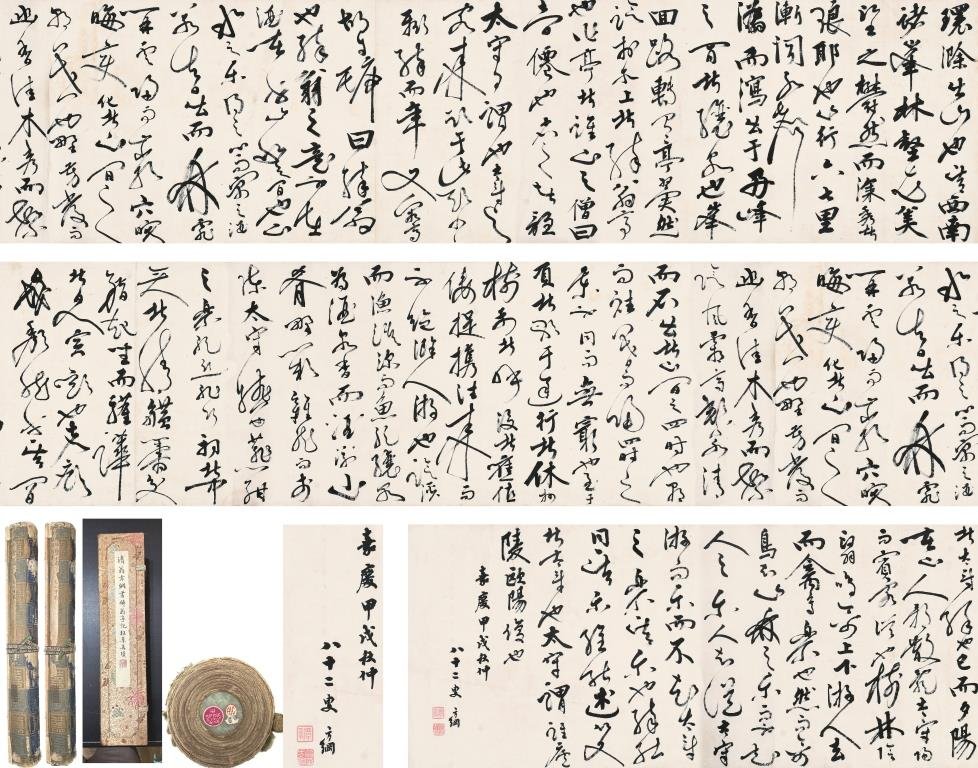 環滁皆山也其西南
諸峰林壑尤美
望之蔚然而深秀者
琅耶也山行六七里
漸聞水聲
潺而瀉出于兩峰
之間者釀泉也峰
回路轉有亭翼然
臨於泉上者醉翁亭
也作亭者誰山之僧曰
智僊也名之者誰
太守自謂也太守與
客來飲于此飲少
輒醉而年又最高
故自號曰醉翁
也醉翁之意不在
酒在乎山水之間也山
水之樂得之心而寓之酒
若夫日出而林霏
開雲歸而巖穴暝
晦變化者山間之
朝暮也野芳發而
幽香佳木秀而繁
水之樂得之心而寓之酒
若夫日出而林霏
開雲歸而巖穴暝
晦變化者山間之
朝暮也野芳發而
幽香佳木秀而繁
陰風霜高潔水清
而石出者山間之四時也朝
而往暮而歸四時之
景不同而樂無窮也至于
負者歌于途行者休于
樹前者呼後者應傴
僂提攜往來而
不絕滁人遊也臨溪
而漁溪深而魚肥釀泉
為酒泉香而酒洌山
肴野蔌雜然而前
陳太守宴也宴酣
之樂非絲非竹射者中
弈者勝觥籌交
錯起坐而諠譁
者眾賓歡也蒼顏
白髮頹然乎其間
者太守醉也已而夕陽
在山人影散亂太守歸
而賓客從也樹林陰
翳鳴聲上下遊人去
而禽鳥樂也然而禽
鳥知山林之樂而不知
人之樂人知從太守
遊而樂而不知太守
之樂其樂也醉能
同其樂醒能述以文
者太守也太守謂誰廬
陵歐陽修也
嘉慶甲戌秋仲
八十二叟方綱
嘉慶甲戌秋仲
八十二叟方綱
清翁方綱書醉翁亭記狂草真蹟